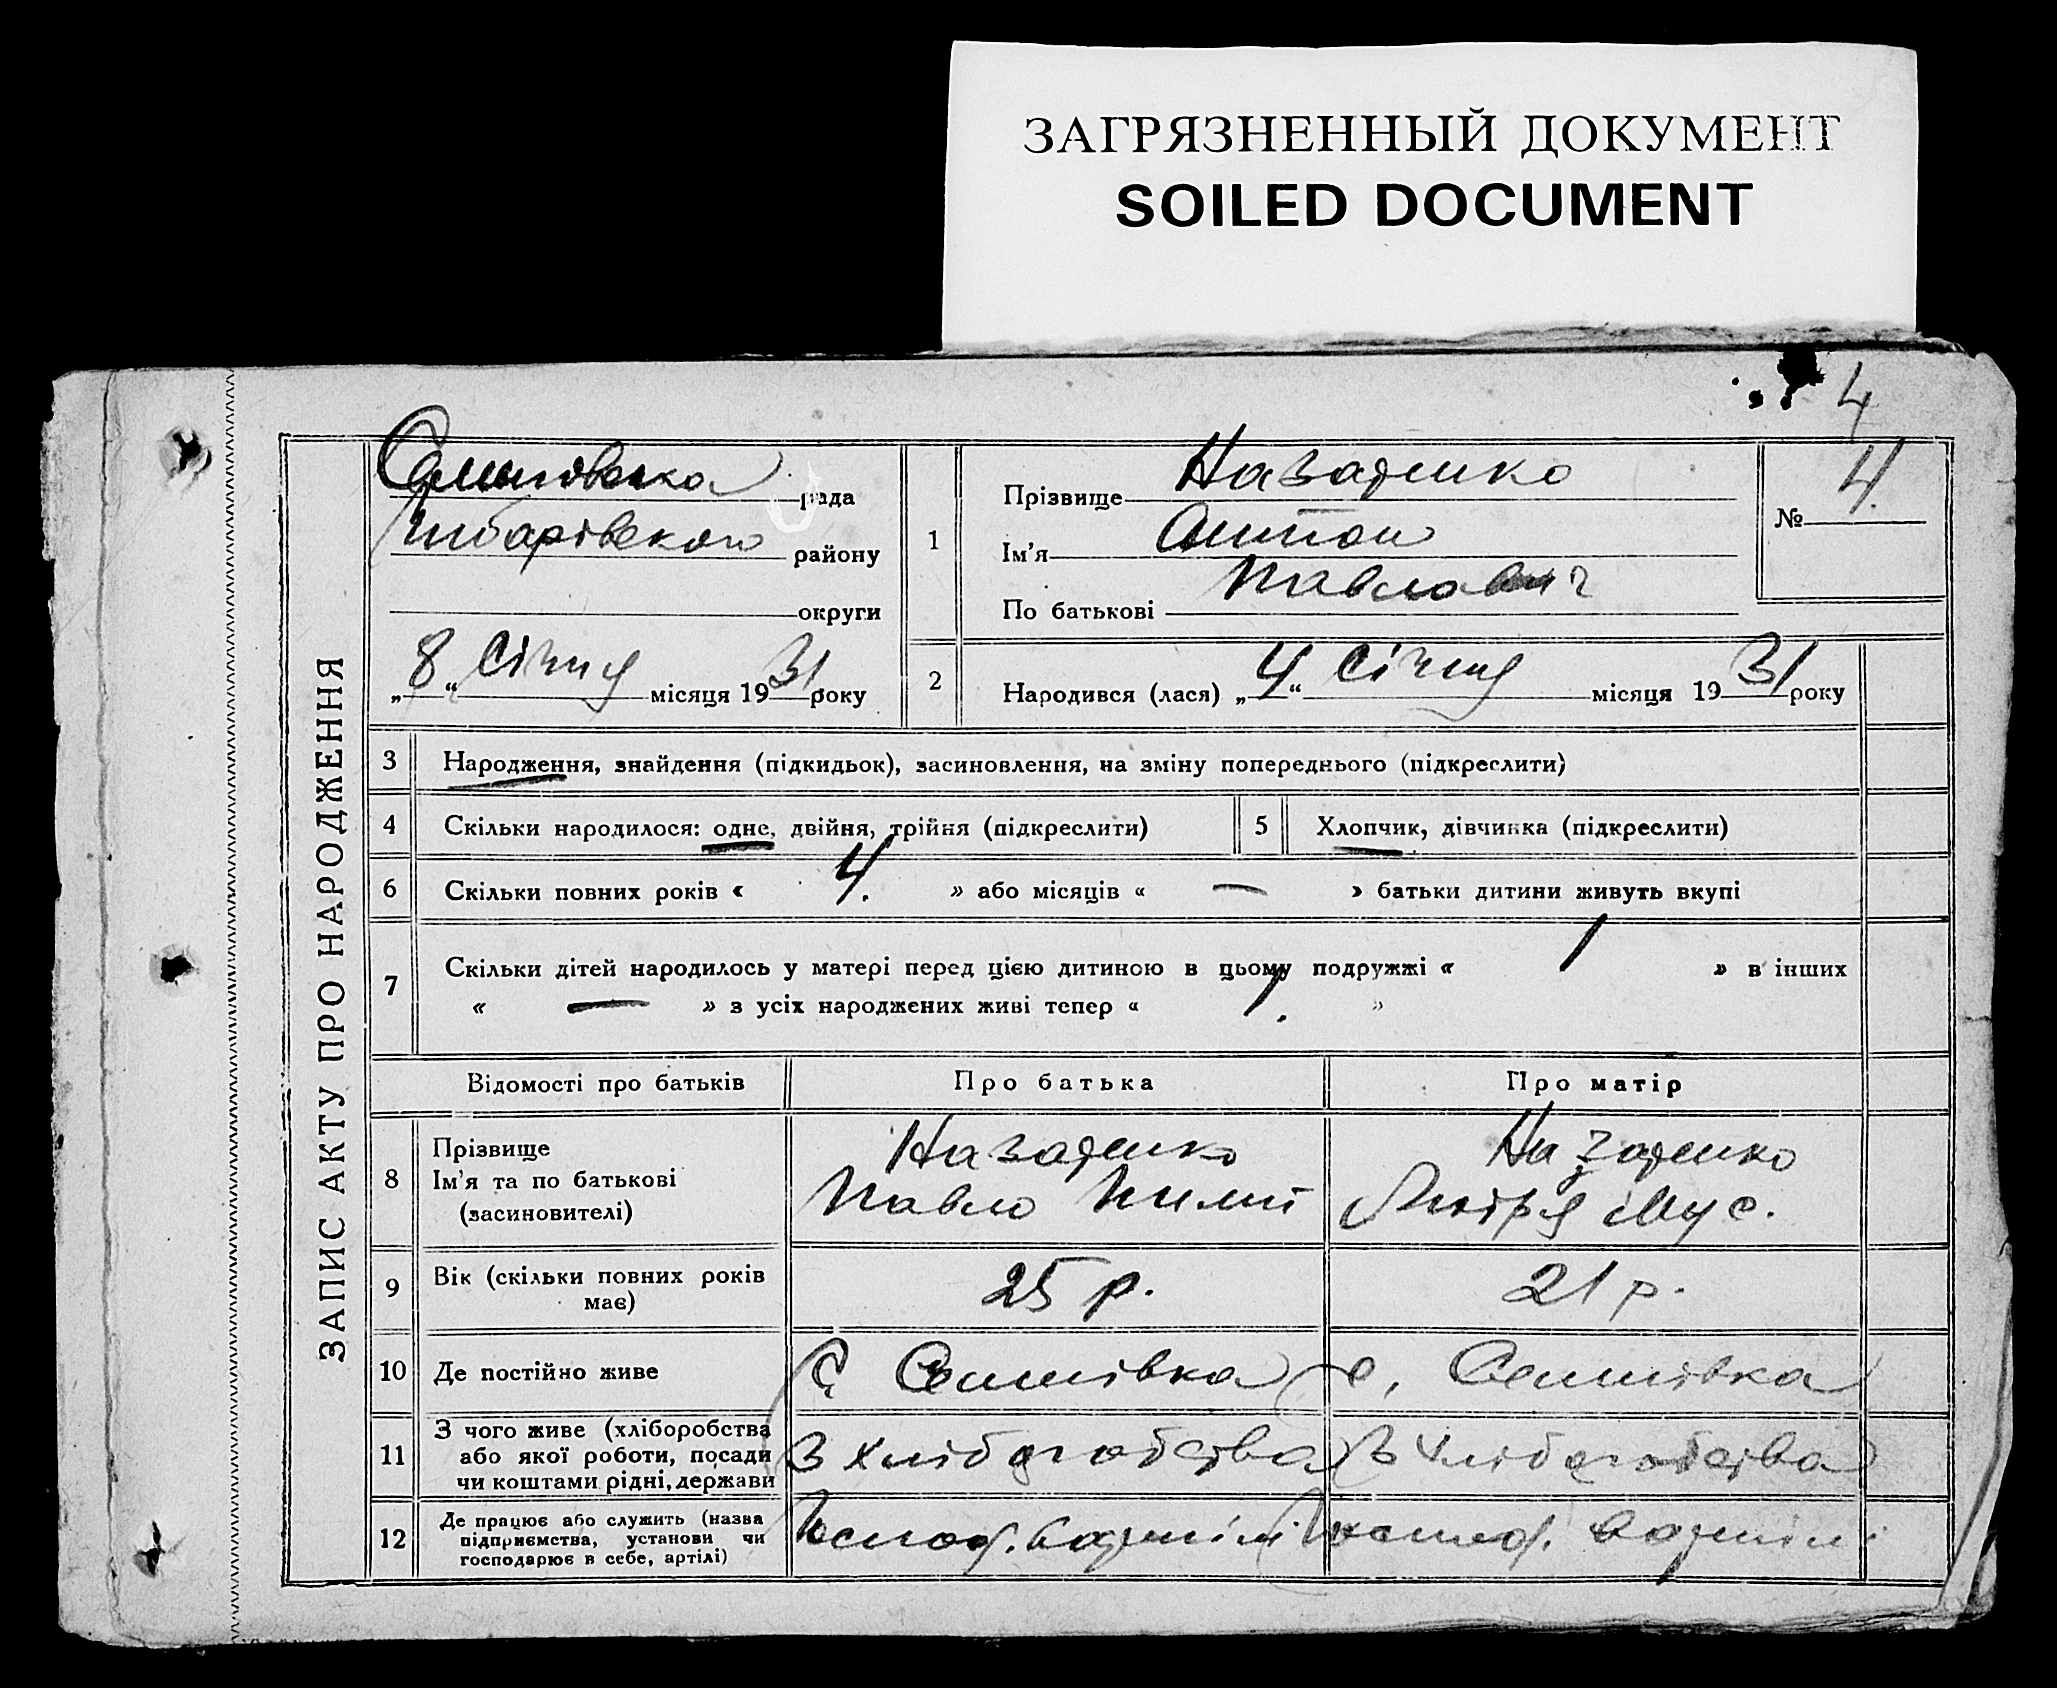 ЗАГРЯЗНЕННЫЙ ДОКУМЕНТ
SOILED DOCUMENT
4
ЗАПИС АКТУ ПРО НАРОДЖЕННЯ
рада
району
округи
„8“ Січня місяця 1931 року
1
Прізвище Назаренко
Ім'я Антон
По батькові Павлович
№ 4
2
Народився (лася) „4“ Січня місяця 1931 року
3 Народження, знайдення (підкидьок), засиновлення, на зміну попереднього (підкреслити)
4 Скільки народилося: одне, двійня, трійня (підкреслити)
5 Хлопчик, дівчинка (підкреслити)
6 Скільки повних років « 4. » або місяців « — » батьки дитини живуть вкупі
7 Скільки дітей народилось у матері перед цією дитиною в цьому подружжі « 1 » в інших
« — » з усіх народжених живі тепер « 1. »
Відомості про батьків Про батька Про матір
8 Прізвище
Ім'я та по батькові
(засиновителі)
Назаренко
Павло
Назаренко
Мус.
9 Вік (скільки повних років
має)
25 р. 21 р.
10 Де постійно живе
с. Семшівка с. Семшівка
11 З чого живе (хліборобства
або якої роботи, посади
чи коштами рідні, держави
З хліборобства З хліборобства
12 Де працює або служить (назва
підприємства, установи чи
господарює в себе, артілі)
в артілі в артілі